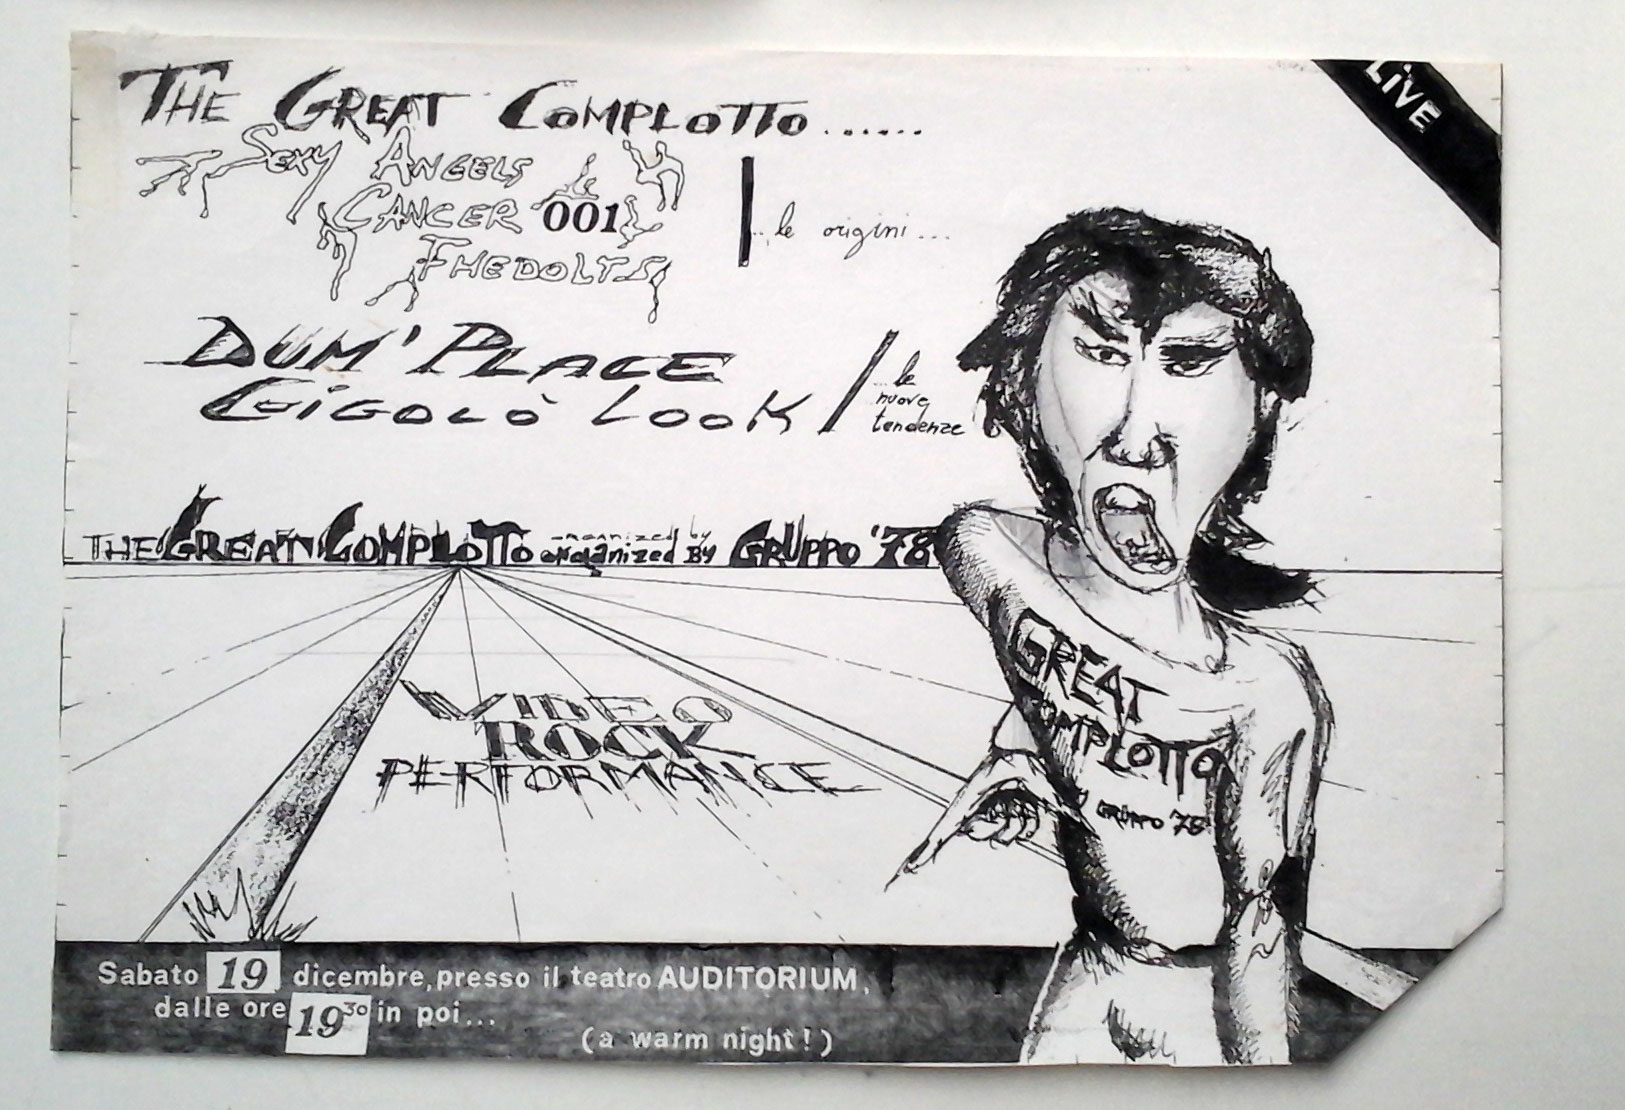 THE GREAT COMPLOTTO......
LIVE
SEXY ANGELS &
CANCER 001
FHEDOLTS
..le origini...
DUM' PLACE
GIGOLÒ LOOK
..le
nuove
tendenze
THE GREAT COMPLOTTO organized by organized BY GRUPPO '78
GREAT
COMPLOTTO
GRUPPO '78
VIDEO
ROCK
PERFORMANCE
Sabato 19 dicembre, presso il teatro AUDITORIUM,
dalle ore 19 30 in poi...
(a warm night!)